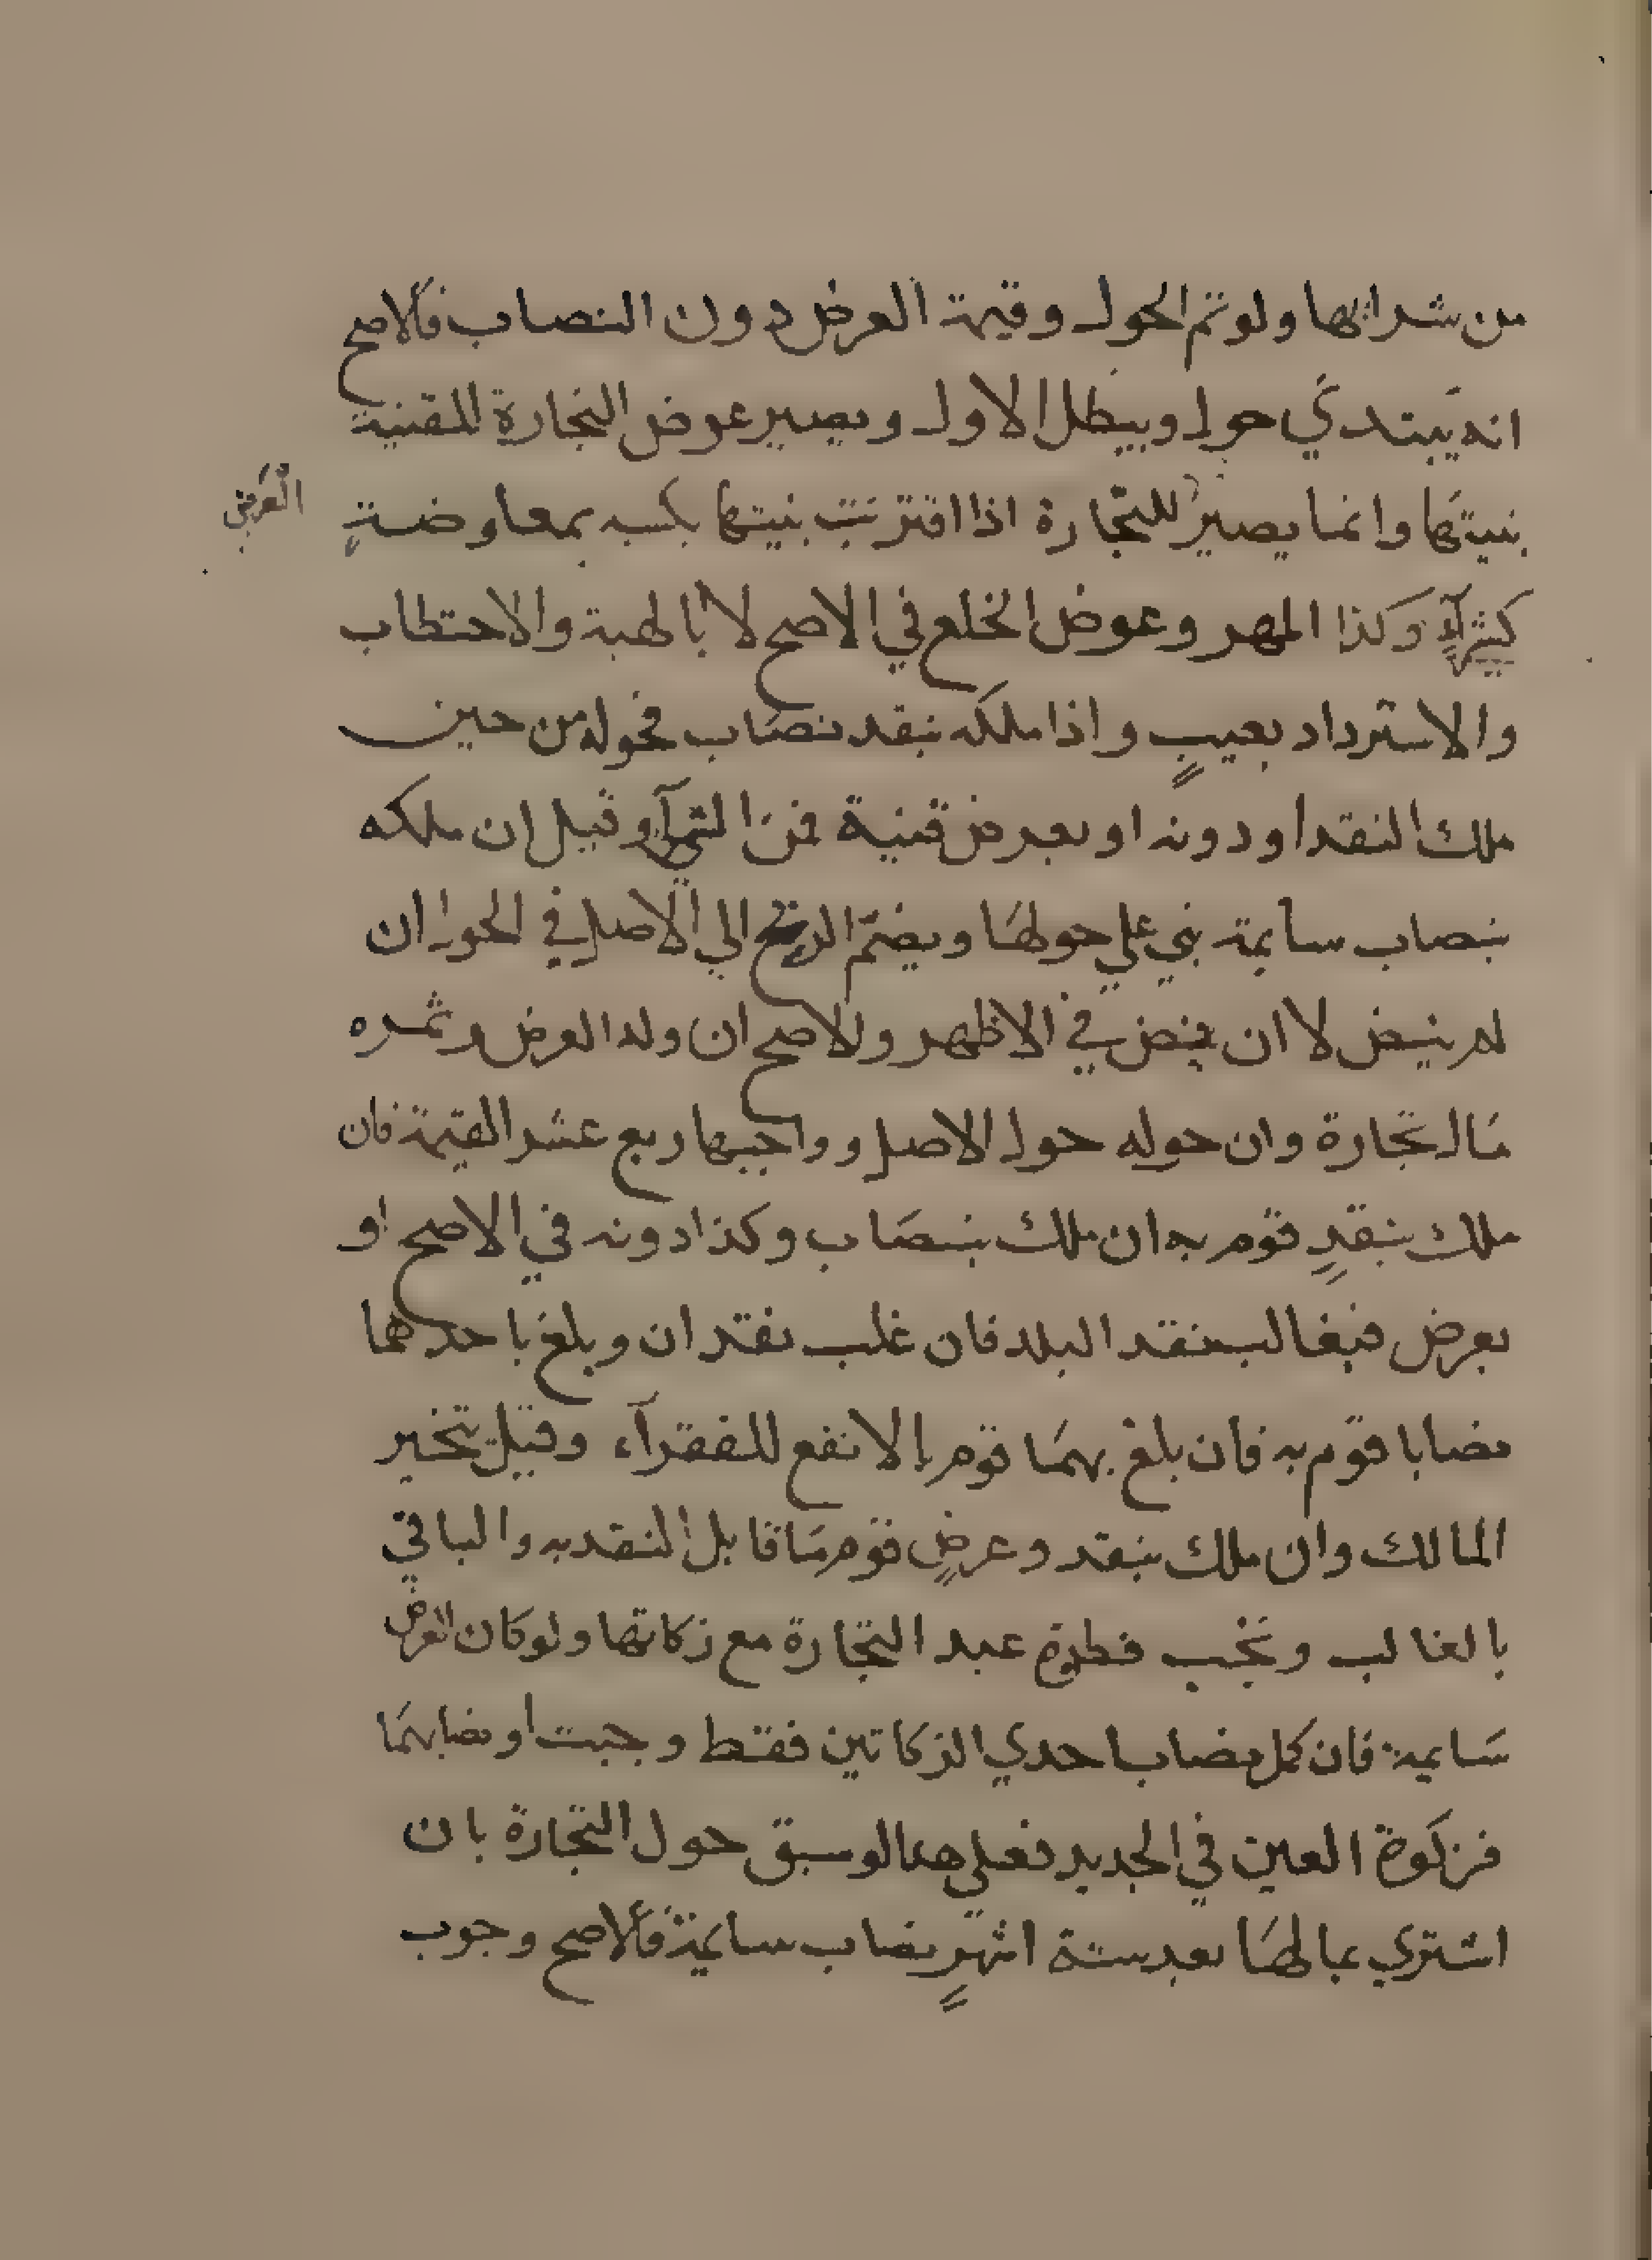 من شرائها ولو تم الحول وقيمة العرض دون النصاب فالاصح
انه يبتدي حول ويبطل الاول ويصير عوض التجارة للقنية
بنيتها وانما يصير للتجارة اذا اقترنت بنيتها بكسبه بمعاوضة
العرض
كشرآء وكذا المهر وعوض الخلع في الاصح لا بالهبة والاحتطاب
والاسترداد بعيب واذا ملكه بنقد نصاب فحوله من حين
ملك النقد او دونه او بعرض قنية فمن الشرآ وقيل ان ملكه
بنصاب سايمة بني علي حولها ويضم الربح الي الاصل في الحول ان
لم ينض لا ان ينض في الاظهر والاصح ان ولد العرض وثمره
مال تجارة وان حوله حول الاصل وواجبها ربع عشر القيمة فان
ملك بنقد قوم به ان ملك بنصاب وكذا دونه في الاصح او
بعرض فبغالب نقد البلد فان غلب نقدان وبلغ باحدهما
نصابا قوم به فان بلغ بهما قوم بالانفع للفقرآء وقيل يتخير
المالك وان ملك بنقد وعرض قوم ما قابل النقد به والباقي
بالغالب وتجب فطرة عبد التجارة مع زكاتها ولو كان العرض
سايمة فان كمل نصاب احدي الزكاتين فقط وجبت او نصابهما
فزكوة العين في الجديد فعلي هذا لو سبق حول التجارة بان
اشتري بمالها بعد ستة اشهر نصاب سايمة فالاصح وجوب